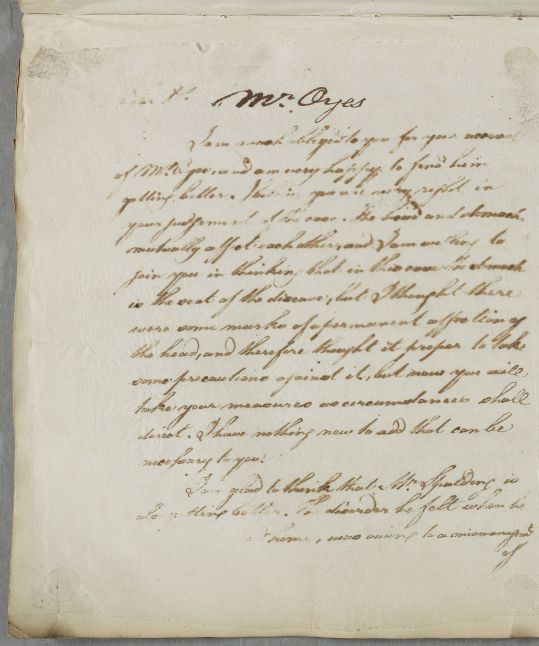 Dear Sr.
Mr. Oyes
I am much obliged to you for your account
of Mr. Oyes, and am very happy to find him
getting better. I think you are very right in
your judgement of the case. The head and stomach
mutually affect each other, and I am willing to
join you in thinking that in this case the stomach
is the seat of the disease, but I thought there
were some marks of a permanent affection of
the head, and therefore thought it proper to take
some precautions against it, but now you will
take your measures as circumstances shall
direct. I have nothing new to add that can be
necessary to you.
I am glad to think that Mr. Spalding is
getting better. The disorder he felt when he
home, was owing to a mismanagemt
of